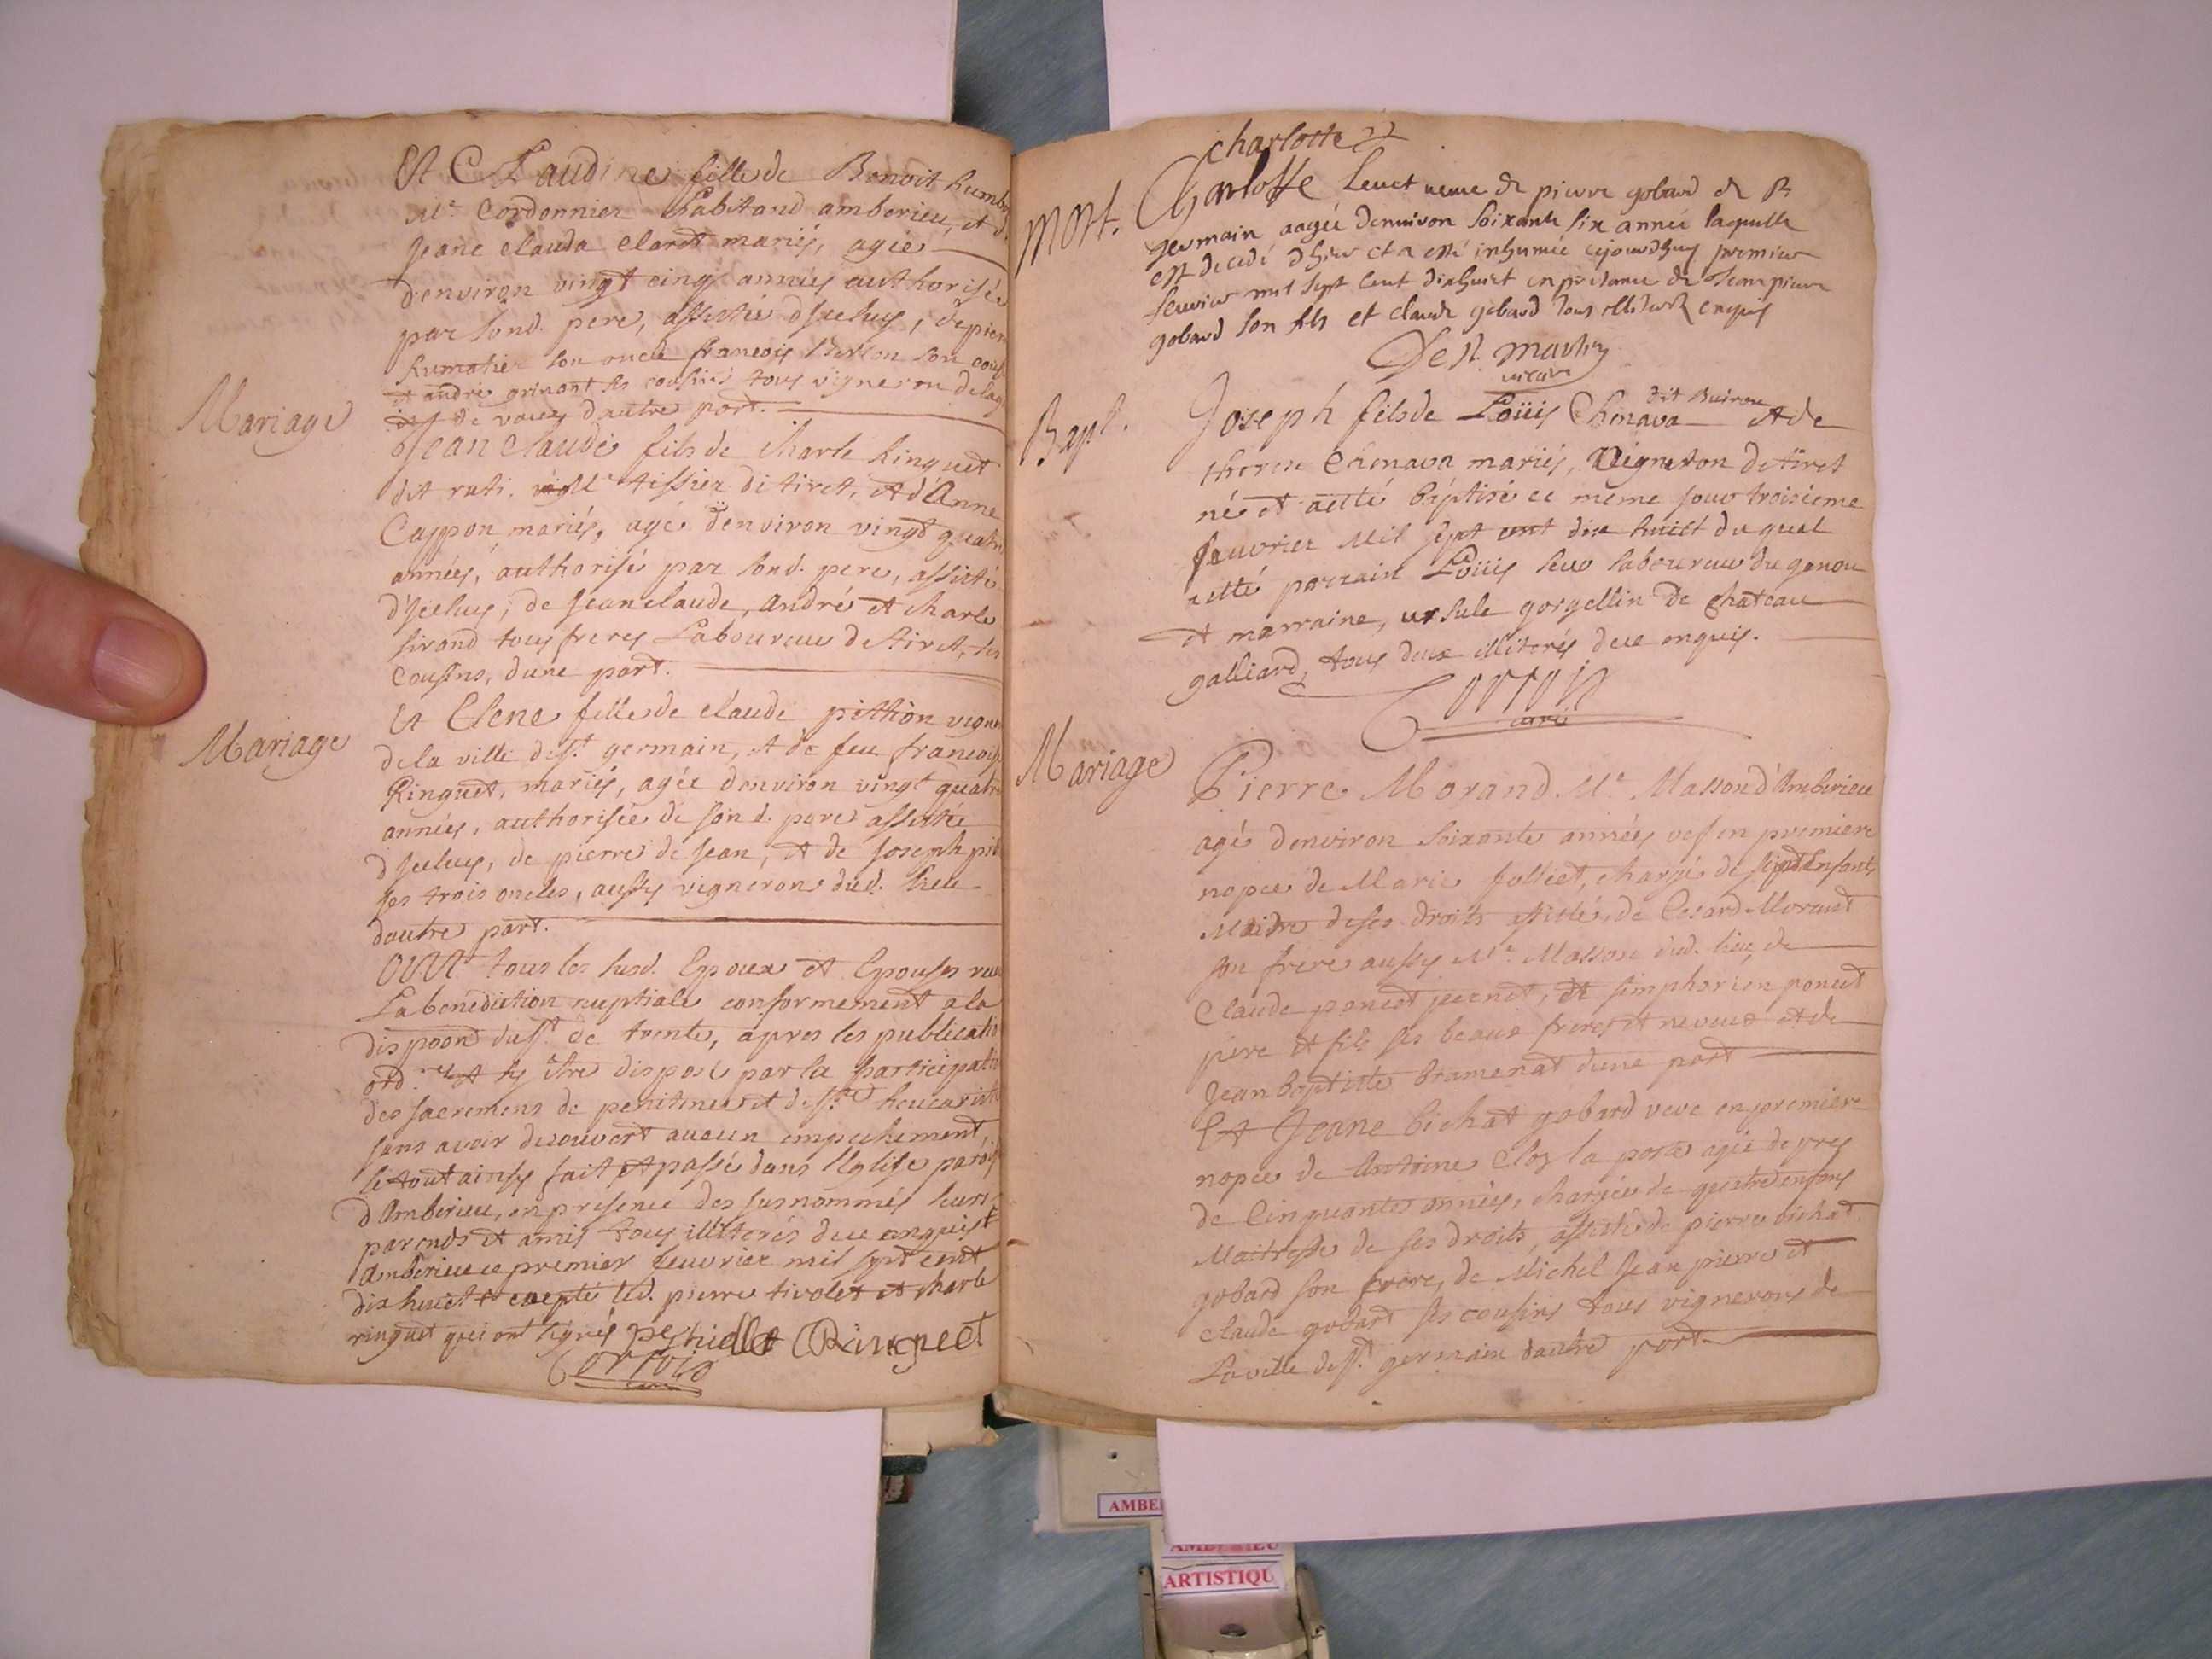 Et Claudine fille de Benoit humb
Me Cordonnier habitand amberieu, et d.
Jeane Clauda Claret mariés, agée
d'environ vingt cinq années authorisée
par sond. pere, assistée d'Jceluy, de pierr
humatier son oncle francois son cous
et andré grinant ses cousins tous vigneron de lag
de vaux dautre part.
Mariage
Jean Claude fils de Charle Ringuet
dit ruti, Me tissier de tiret, et d'Anne
Cappon mariés, agé d'environ vingt quatre
années, authorisé par sond. pere, assisté
d'Jceluy, de Jeanclaude, André et Charle
sirand tous freres Laboureur de tiret, ses
Cousins, dune part.
Mariage
Et Elene fille de claude pithion vigne
dela ville de st. germain, et de feu francois
Ringuet, mariés, agée d'environ vingt quatre
années, authorisée de son d. pere assistée
d'Jceluy, de pierre de Jean, et de Joseph pit
ses trois oncles, aussy vignerons dud. lieu
dautre part.
Ont tous les susd. Epoux et Epouses reçu
La benediction nuptiale conformement a la
dispoon du st. de trente, apres les publicatio
ord.res et sy être disposé par la participatio
des sacremens de penitence et de ste heucaristi
sans avoir decouvert aucun empechement,
le tout ainsy fait et passé dans l'Eglise parois
d'Amberieu, en presence des susnommés leurs
parends et amis tous illiterés deue enquis
Amberieu ce premier feuvrier mil sept cent
dix huict et excepté led. pierre tivolet et charle
ringuet qui ont signés Ringuet
Cortois
curé
charlotte
Mort.
Charlotte Leuet veuve de pierre gobard de St
germain aagée denuiron soixante six année laquelle
est decedé dhier et a esté inhumée cejourdhuy premier
feuvrier mil sept cent dixhuict en presence de Jean pierre
gobard son fils et claude gobard tous illiterés enquis
De St. Martin
vicaire
Bapt.
dit Buiron
Joseph fils de Loüis Chenava Et de
therese Chenava mariés, Vigneron de tiret
né et a etté baptisé ce meme jour troisieme
feuvrier Mil sept cent dix huict du quel
a etté parrain Loüis laboureur du
et marraine, ursule gorgellin de Chateau
galliard, tous deux illiterés deue enquis.
Cortois
curé
Mariage
Pierre Morand Me Masson d'Amberieu
agé d'environ soixante années vef en premiere
nopce de Marie folliet, chargé de sept Enfants
Maitre deses droits assisté, de Cesard Morand
son frere aussy Me. Masson dud. lieu, de
Claude poncet et simphorien poncet
pere et fils ses beaux freres et neveux et de
Jean baptiste bramerat dune part
Et Jeane bichat gobard veve en premiere
nopce de Antoine Cloz la porte agée de pres
de Cinquante années, chargée de quatre enfans
Maitresse de ses droits, assistée de pierre bichat
gobard son frere, de Michel Jean pierre et
claude gobard ses cousins tous vignerons de
La ville de st. germain dautre part
AMBE
AMBERIEU
ARTISTIQU